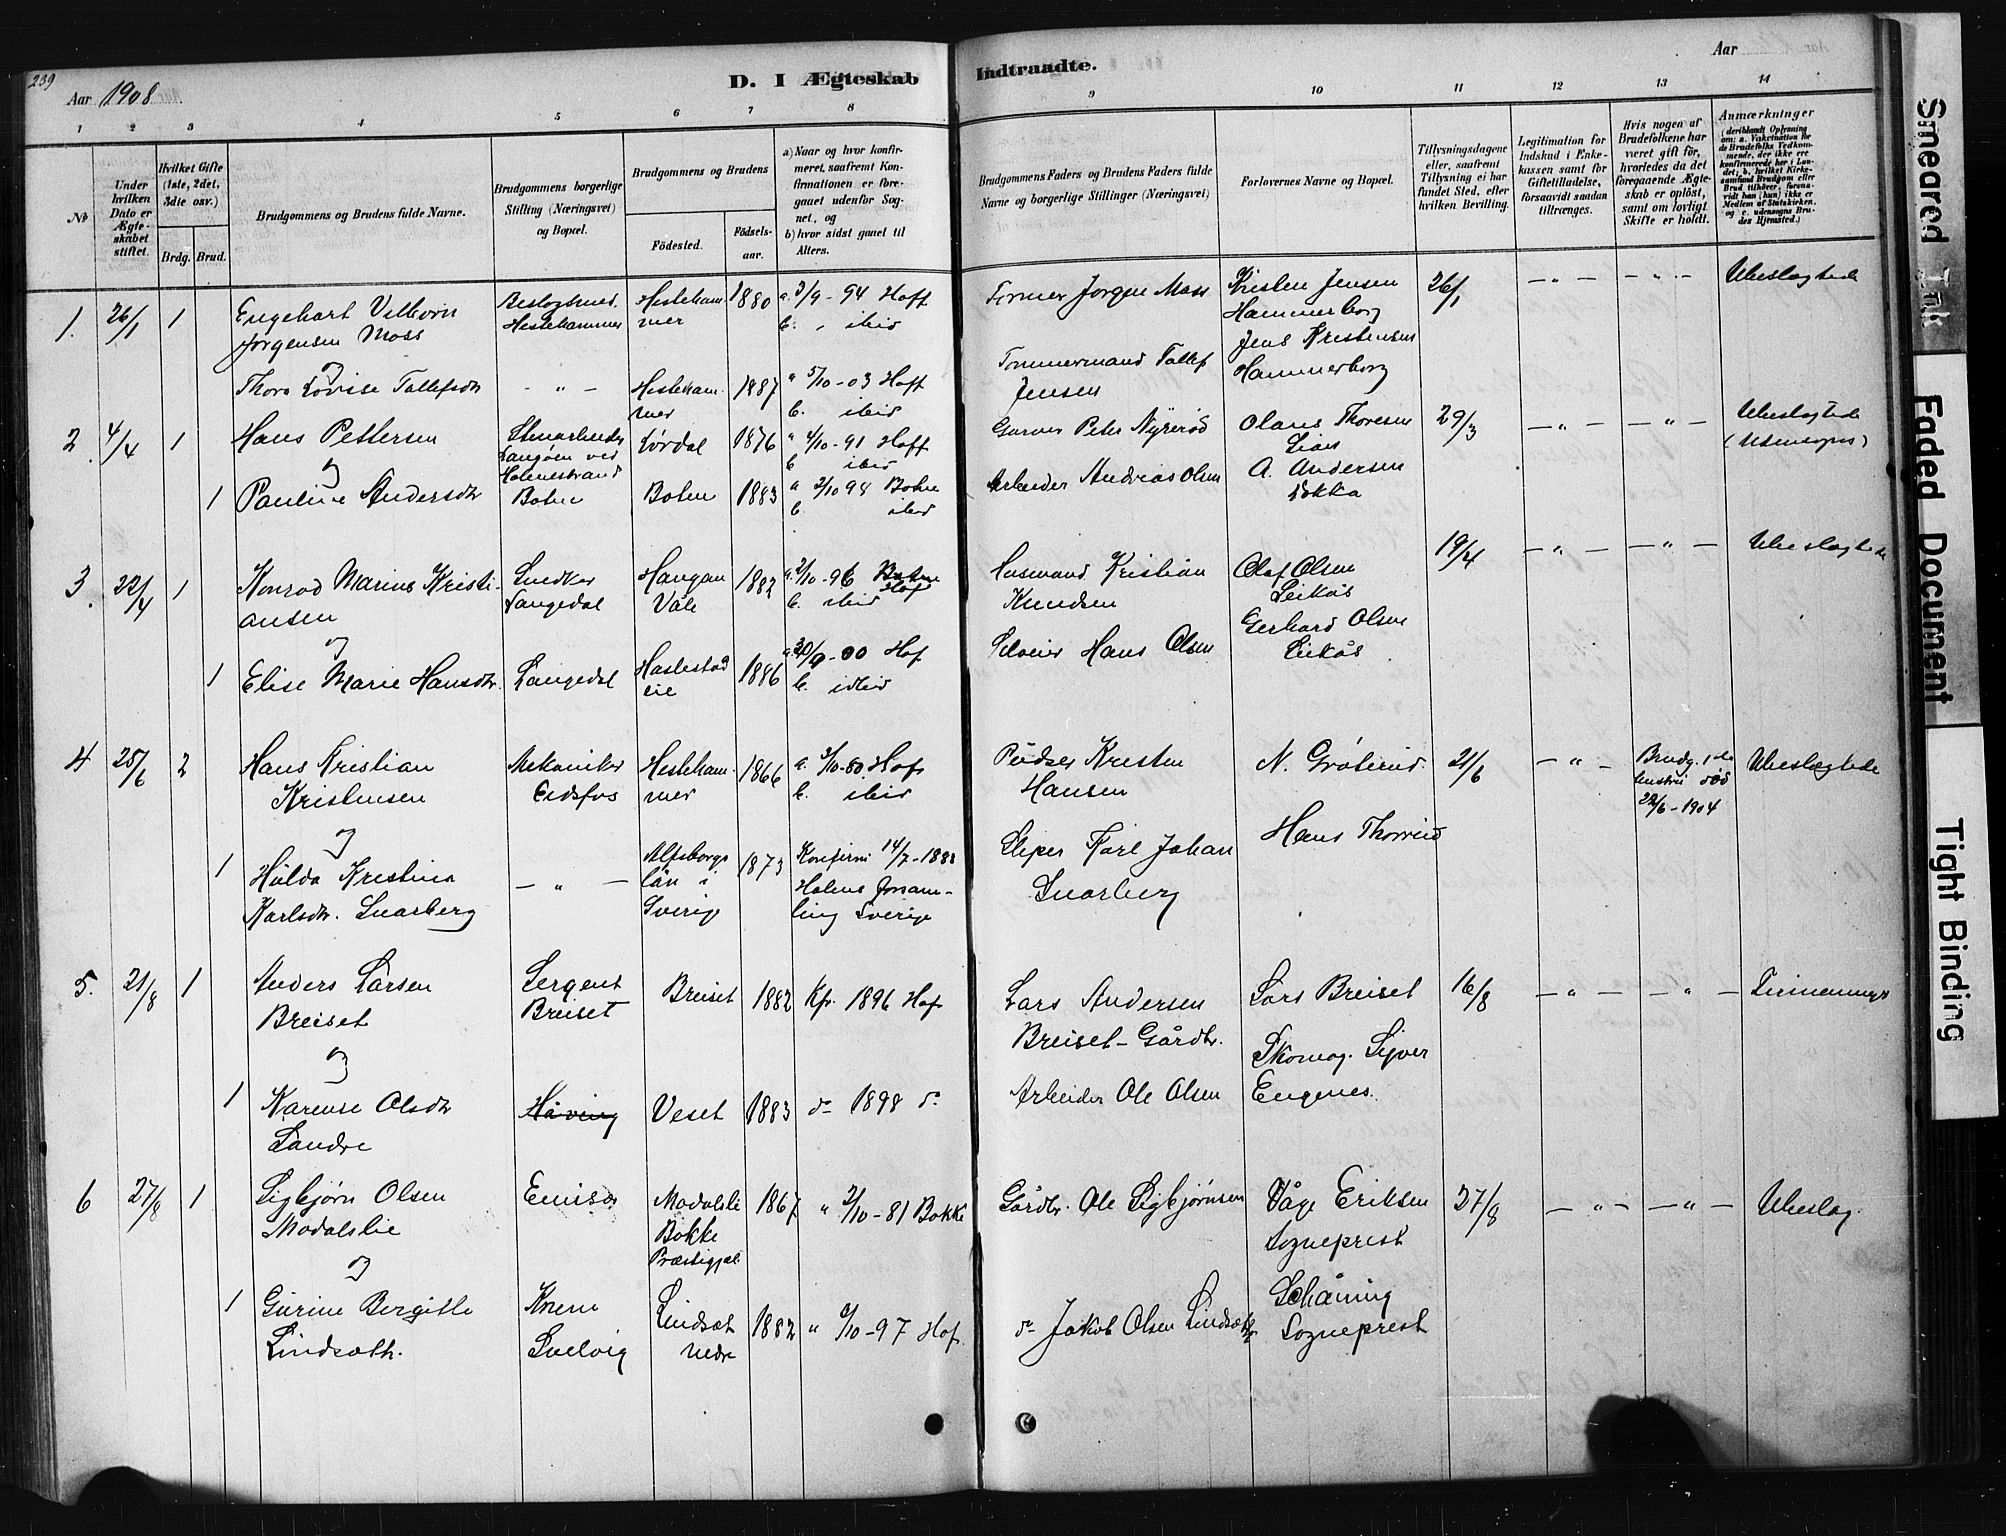 239
Aar 1908
D. I Ægteskab
Indtraadte.
Aar
1 2 3 4 5 6 7 8 9 10 11 12 13 14
No
Under hvilken Dato er Ægteskabet stiftet.
Hvilket Gifte (1ste, 2det, 3die osv.)
Brdg. Brud.
Brudgommens og Brudens fulde Navne.
Brudgommens borgerlige Stilling (Næringsvei) og Bopæl.
Brudgommens og Brudens
Fødested.
Fødselsaar.
a) Naar og hvor konfirmeret, saafremt Konfirmationen er foregaaet udenfor Sognet, og
b) hvor sidst gaaet til Alters.
Brudgommens Faders og Brudens Faders fulde Navne og borgerlige Stillinger (Næringsvei)
Forlovernes Navne og Bopæl.
Tillysningsdagene eller, saafremt Tillysning ei har fundet Sted, efter hvilken Bevilling.
Legitimation for Indskud i Enkekassen samt for Giftetilladelse, forsaavidt saadan tiltrænges.
Hvis nogen af Brudefolkene har været gift før, hvorledes da det foregaaende Ægteskab er opløst, samt om lovligt Skifte er holdt.
Anmærkninger
1. 26/1 1 Engebart Jørgensen Moss
Hestehammer 1880 a. 3/9 - 94 Hoff
b. " ibid
Jørgen Moss
Kristen Jensen Hammerborg 26/1 Ubeslægtede
og
Thora Lovise Tollefsdtr - " - Hestehammer 1887 " 5/10 - 03 Hoff
b. ibid
Tømmermand Tollef Jensen
Jens Kristensen Hammerborg
2. 4/4 1 Hans Pettersen
Langøen ved Holmestrand
1876 " 4/10 - 91 Hoff
b. ibid
Garver Peter
Olaus Thoresen 29/3 - " - - " - Ubeslægtede
og
1 Pauline Andersdtr Botne Botne 1883 a 2/10 98 Botne
b. ibid
Arbeider Andreas Olsen
A. Andersen
3. 22/4 1 Konrad Marius Kristiansen
Snedker Langedal
Våle 1882 a. 2/10 - 96 Hof
b. ibid
Husmand Kristian Knudsen
Olaf Olsen Leikås 19/4 - " - - " - Ubeslægtede
og
1 Elise Marie Hansdtr. Langedal Haslestad eie 1886 a. 30/9 - 00 Hof
b. ibid
Hans Olsen
Gerhard Olsen Leikås
4 28/6 2 Hans Kristian Kristensen
Mekaniker Eidsfos
Hestehammer 1866 a. 3/10 - 80 Hof
b. ibid
Pudser Kristen Hansen
N. Grøterud 21/6 - " -
Brudg. 1ste hustru død 22/6 - 1904
Ubeslægtede
og
1 Hulda Kristina Karlsdtr. Snarberg
- " - Alfsborgs län i Sverige 1873 Konfirm 14/7 - 1888
Sverige
Sliper Karl Johan Snarberg
Hans Thorrud
5. 21/8 1 Anders Larsen Breiset
Sergent Breiset
Breiset 1882 Kf. 1896 Hof
Lars Andersen Breiset - Gårdbr.
Lars Breiset 16/8 - " - - " -
og
1 Karense Olsdtr Sandre
Veset 1883 do 1898 do
Arbeider Ole Olsen
Skomag. Sigver Engenes.
6 27/8 1 Sigbjørn Olsen Modalslie
Emisær
Modalsli Bokke Præstegjæl 1867 " 2/10 - 81 Bokke
Gårdbr. Ole Sigbjørnsen
Våge Eriksen Sogneprest 27/8 - " - - " - Ubeslæg.
og
1 Gurine Bergitte Lindsæth.
Svelvig
Lindsæt nedre 1882 " 3/10 - 97 Hof.
do Jakob Olsen Lindsæth
Schåning Sogneprest
Smeared Ink
Faded Document
Tight Binding